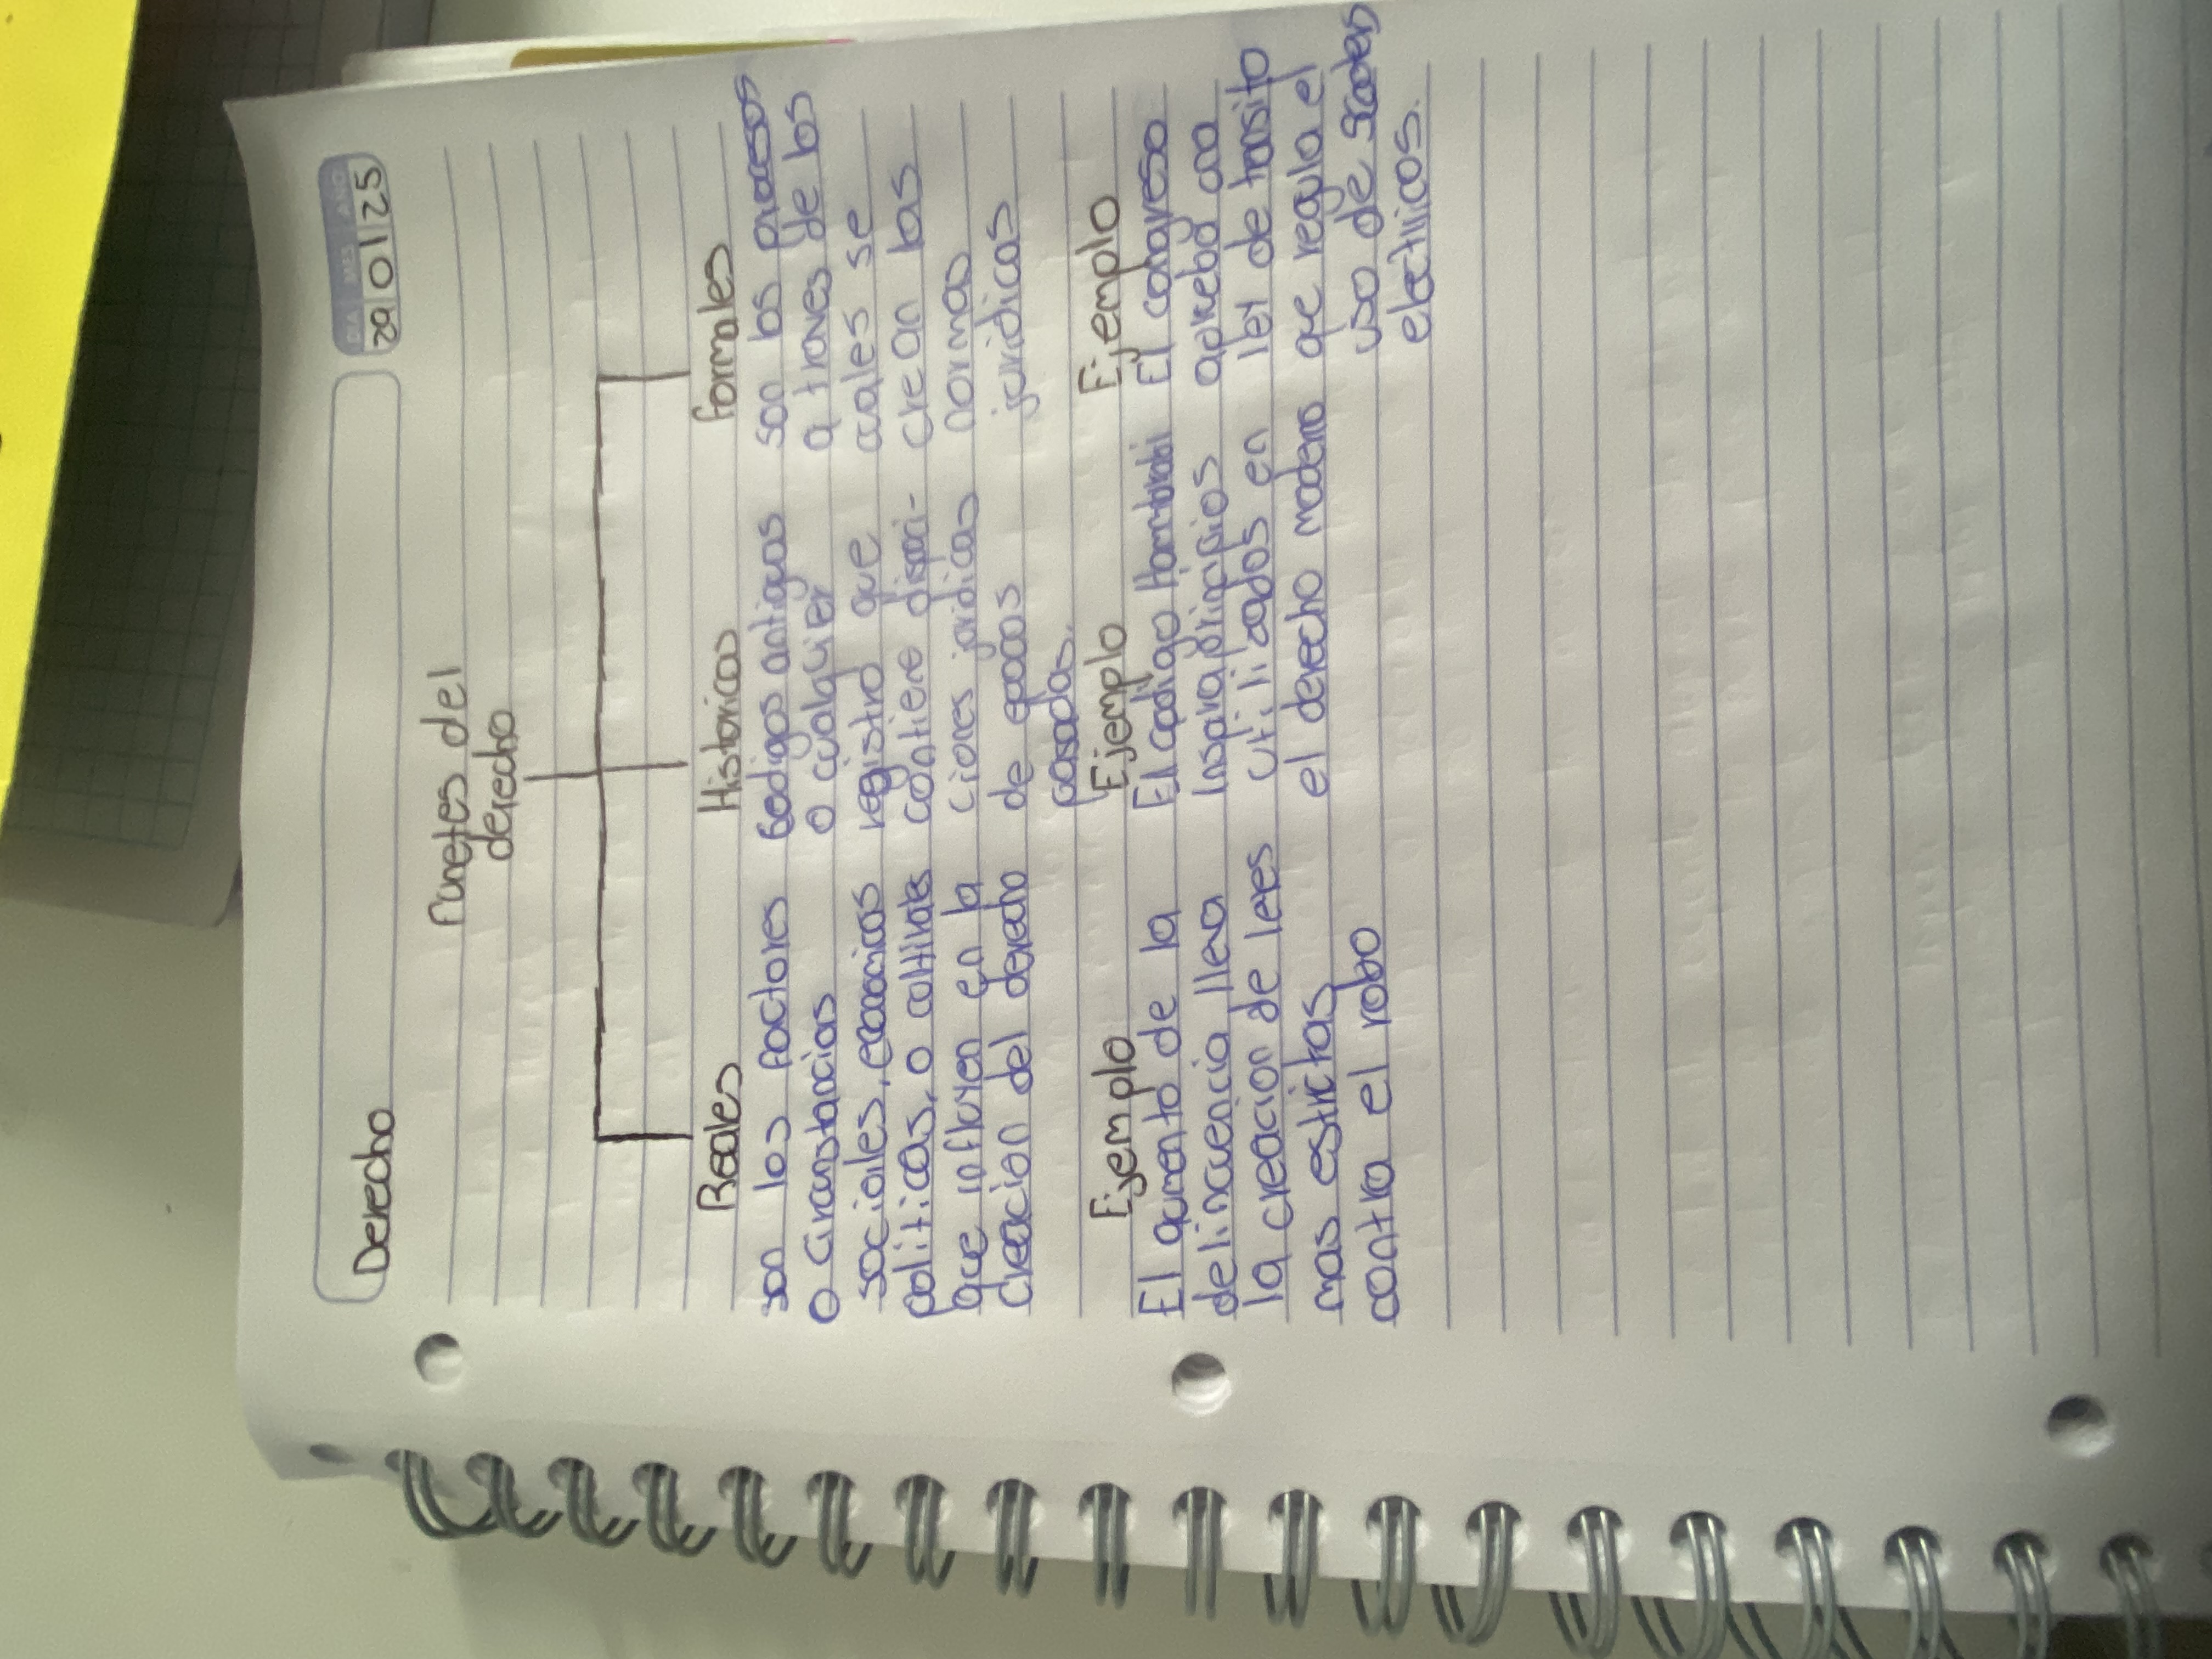 Derecho
DIA MES AÑO
29 01 25
funetes del
derecho
Reales
son los factores
o ciranstancias
sociales, economicas
politicas, o culturales
que influyen en la
creacion del derecho
Ejemplo
El aumento de la
delincuencia lleva
la creacion de leyes
mas estrictas
contra el robo
Historicas
Codigos antiguos
o cualquier
registro que
contiene disposi-
ciones juridicas
de epocas
pasadas.
Ejemplo
El codigo Hammurabi
Inspira principios
utilizados en
el derecho moderno
formales
son los procesos
a traves de los
cuales se
crean las
normas
juridicas
Ejemplo
El congreso
aprueba una
ley de transito
que regula el
uso de scooters
electricos.